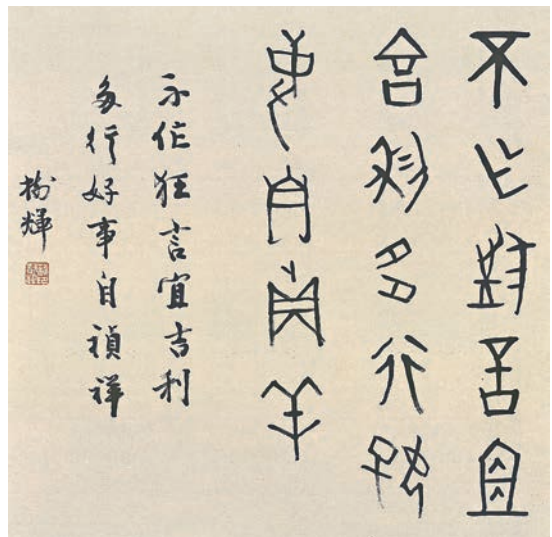 不乍狂言宜
吉利多行好
事自貞羊
不作狂言宜吉利
多行好事自禎祥
樹輝